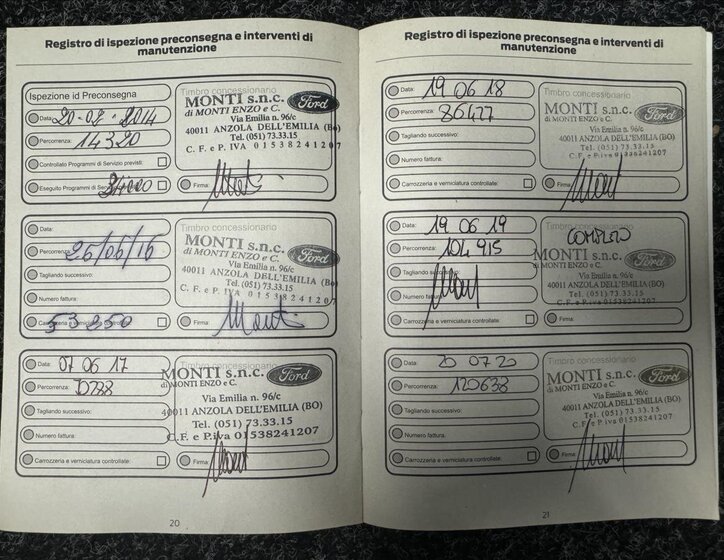 Registro di ispezione preconsegna e interventi di
manutenzione
Ispezione id Preconsegna
Data:
Percorrenza: 14320
Controllato Programmi di Servizio previsti:
Eseguito Programmi di
Timbro concessionario
MONTI s.n.c.
di MONTI ENZO e C.
Ford
Via Emilia n. 96/c
40011 ANZOLA DELL'EMILIA (Bo)
Tel. (051) 73.33.15
C. F. e P. IVA 01538241207
Firma:
Data:
Percorrenza: 25/05/16
Tagliando successivo:
Numero fattura:
53250
Timbro concessionario
MONTI s.n.c.
di MONTI ENZO e C.
Ford
Via Emilia n. 96/c
40011 ANZOLA DELL'EMILIA (Bo)
Tel. (051) 73.33.15
C. F. e P. IVA 01538241207
Firma:
Data: 07 06 17
Percorrenza:
Tagliando successivo:
Numero fattura:
Carrozzeria e verniciatura controllate:
Timbro concessionario
MONTI s.n.c.
di MONTI ENZO e C.
Ford
Via Emilia n. 96/c
40011 ANZOLA DELL'EMILIA (BO)
Tel. (051) 73.33.15
C.F. e P.iva 01538241207
Firma:
20
Registro di ispezione preconsegna e interventi di
manutenzione
Data: 19 06 18
Percorrenza: 86427
Tagliando successivo:
Numero fattura:
Carrozzeria e verniciatura controllate:
Timbro concessionario
MONTI s.n.c.
di MONTI ENZO e C.
Ford
Via Emilia n. 96/c
40011 ANZOLA DELL'EMILIA (BO)
Tel. (051) 73.33.15
C.F. e P.iva 01538241207
Firma:
Data: 19 06 19
Percorrenza: 104915
Tagliando successivo:
Numero fattura:
Carrozzeria e verniciatura controllate:
Timbro concessionario
COMPLETO
MONTI s.n.c.
di MONTI ENZO e C.
Ford
Via Emilia n. 96/c
40011 ANZOLA DELL'EMILIA (BO)
Tel. (051) 73.33.15
C.F. e P.iva 01538241207
Firma:
Data: 20 07 20
Percorrenza: 120633
Tagliando successivo:
Numero fattura:
Carrozzeria e verniciatura controllate:
Timbro concessionario
MONTI s.n.c.
di MONTI ENZO e C.
Ford
Via Emilia n. 96/c
40011 ANZOLA DELL'EMILIA (BO)
Tel. (051) 73.33.15
C.F. e P.iva 01538241207
Firma:
21